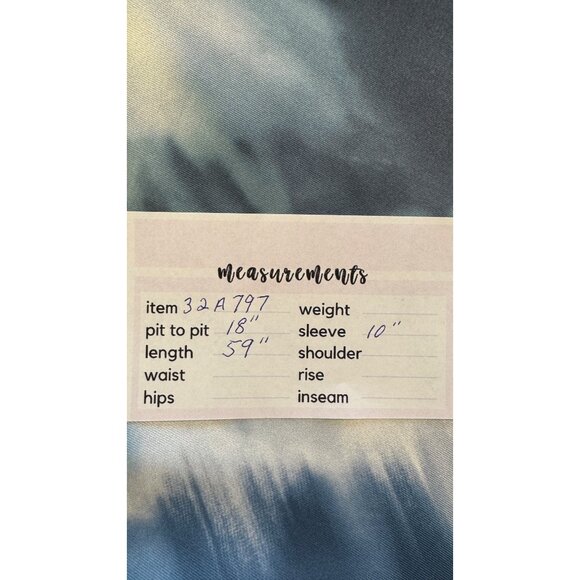 measurements
item 32A797 weight
pit to pit 18" sleeve 10"
length 59" shoulder
waist rise
hips inseam